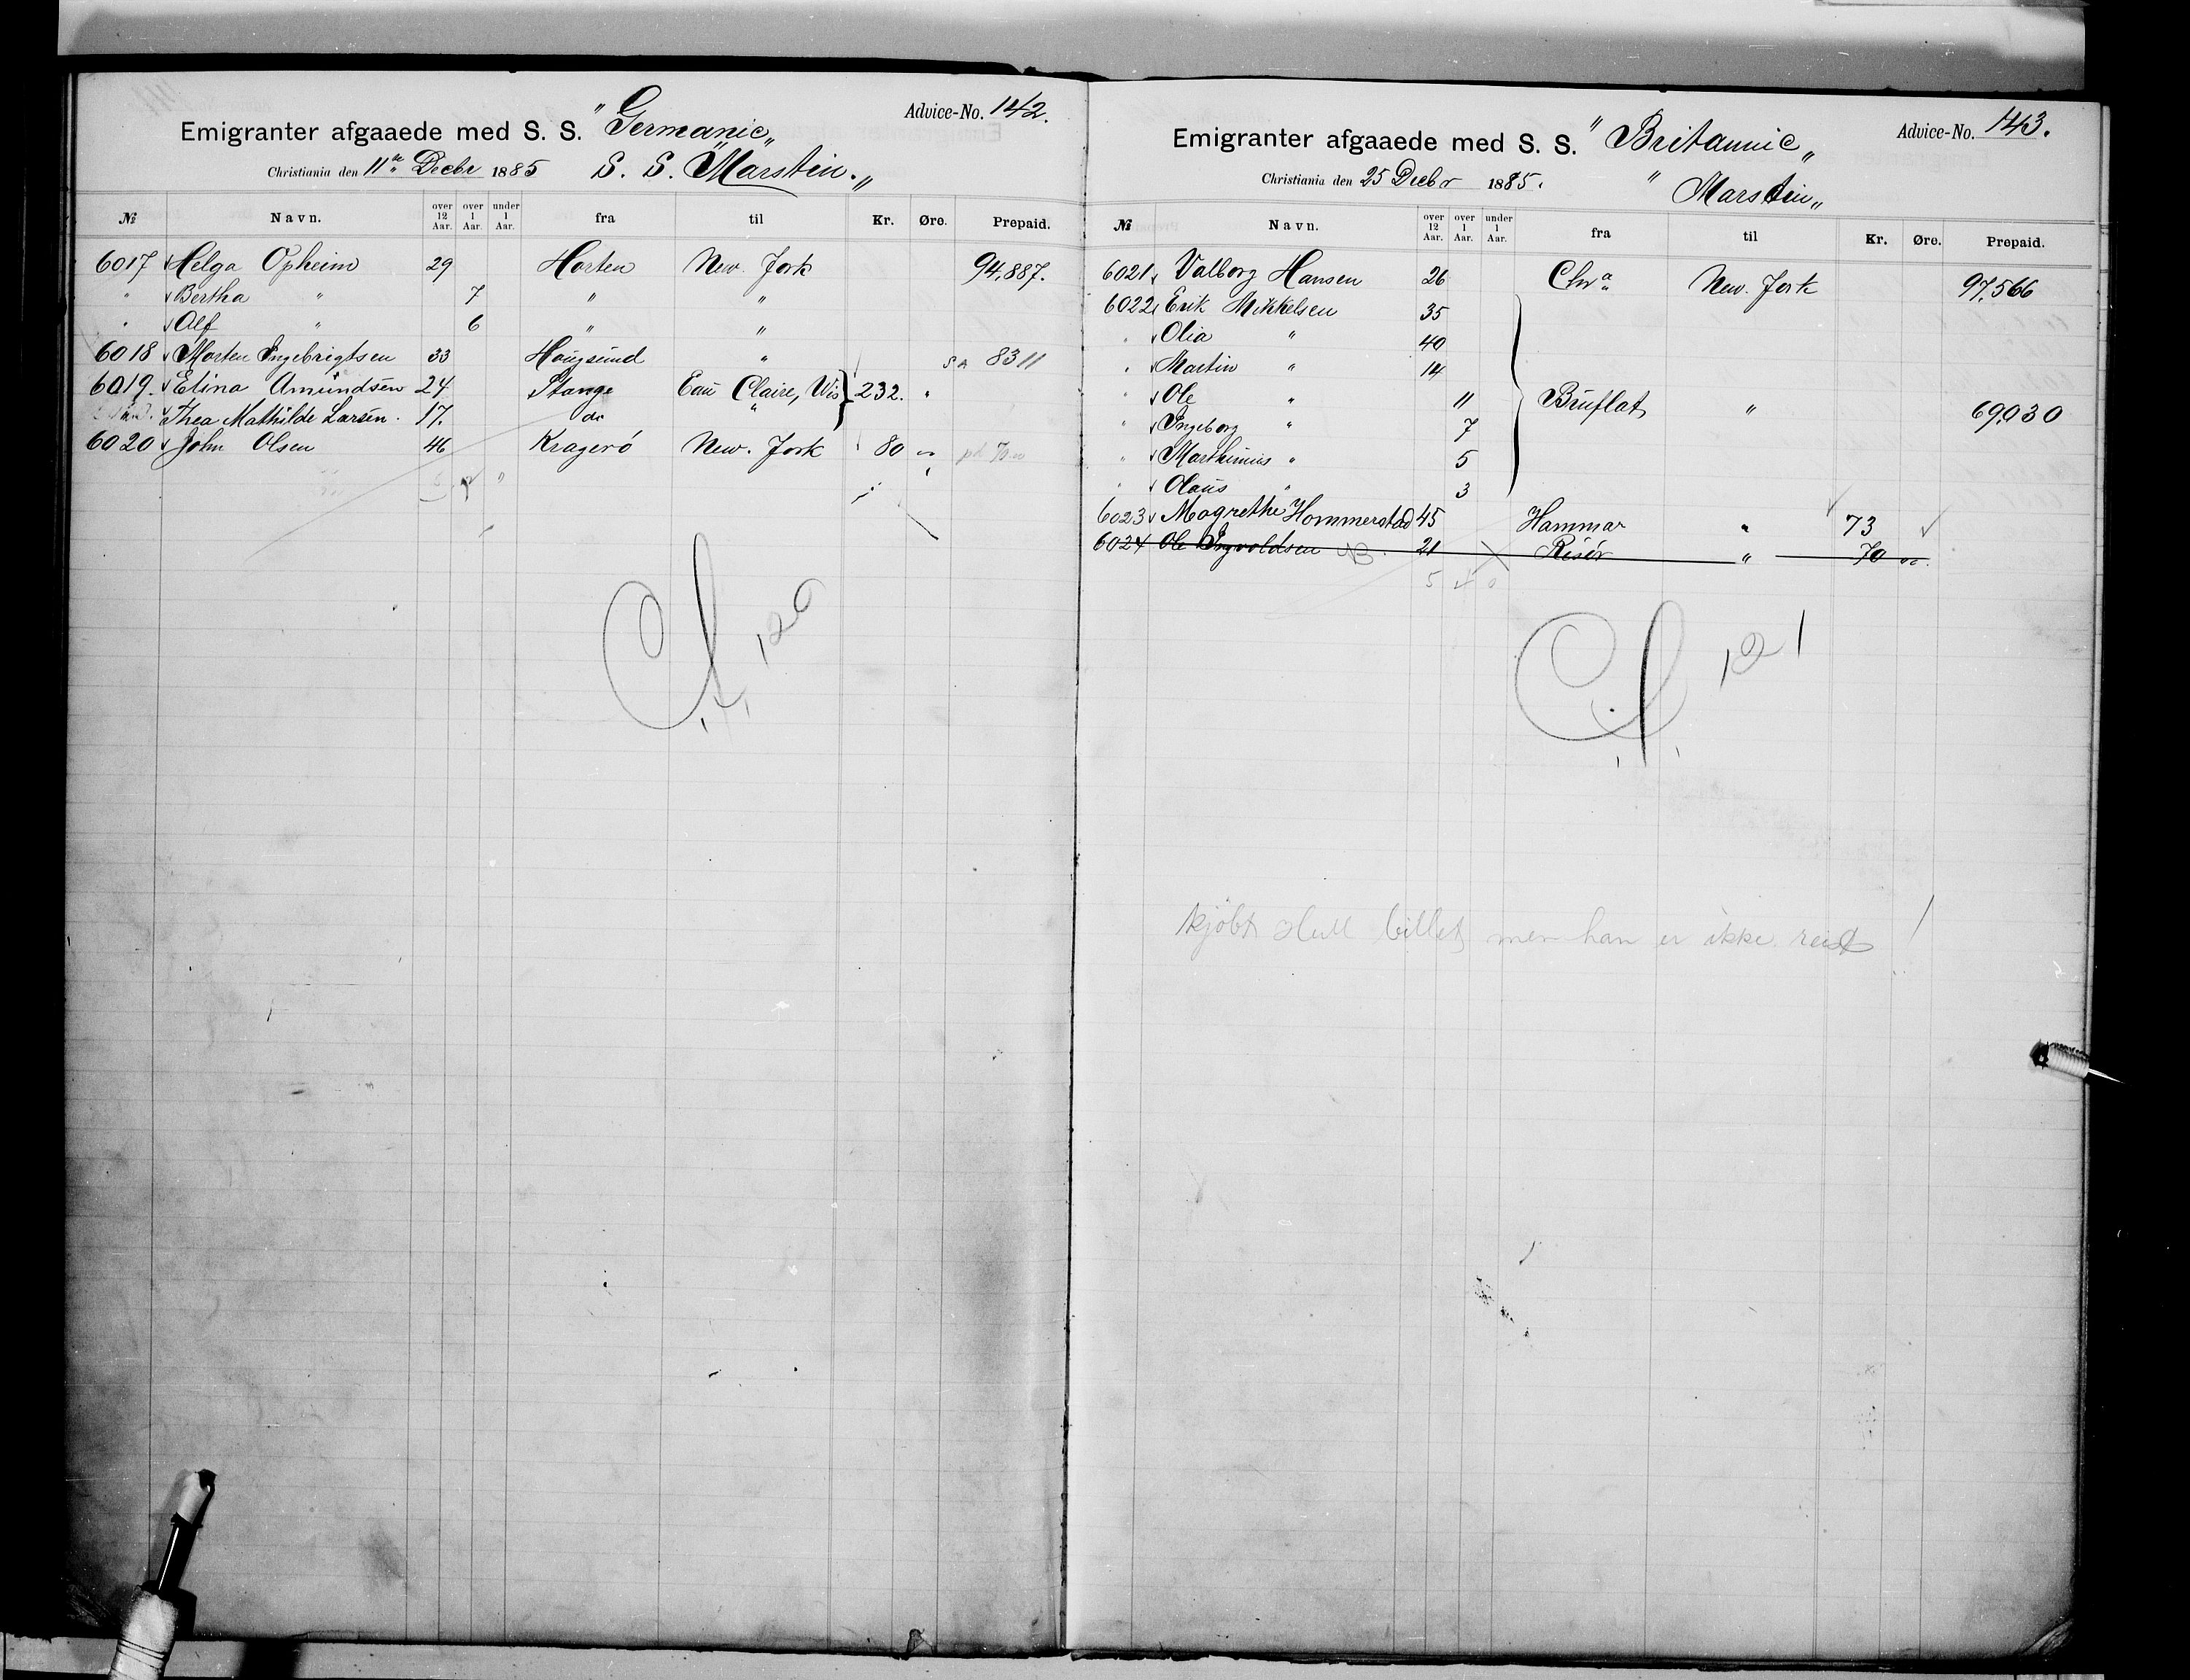 Advice-No. 142.
Emigranter afgaaede med S. S. "Germanic„
Christiania den 11te Decbr 1885 S. S. "Marstein.„
№ Navn. over 12 Aar. over 1 Aar. under 1 Aar. fra til Kr. Øre. Prepaid.
6017 Helga Opheim 29 Horten New. York 94,887.
" Bertha " 7 " "
" Alf " 6 " "
6018 Morten Ingebrigtsen 33 Hougsund " SA 8311
6019. Elina Amundsen 24 Stange Eau Claire, Wis } 232. "
Thea Mathilde Larsen. 17. do "
6020 John Olsen 46 Kragerö New. York 80 "
120
Advice-No. 143.
Emigranter afgaaede med S. S. "Britannic„
Christiania den 25 Decbr 1885. " Marstein„
№ Navn. over 12 Aar. over 1 Aar. under 1 Aar. fra til Kr. Øre. Prepaid.
6021 Valborg Hansen 26 Chra New. York 97,566
6022 Erik Mikkelsen 35
" Olia " 40
" Martin " 14
" Ole " 11 Bruflat " 69,030
" Ingeborg " 7
" Marthinius " 5
" Olaus " 3
6023 Magrethe Hommerstad 45 Hammar " 73
6024 Ole Ingvoldsen 21 Risör " 70 oo.
5 4 0
121
kjöbt Hull billet men han er ikke reist